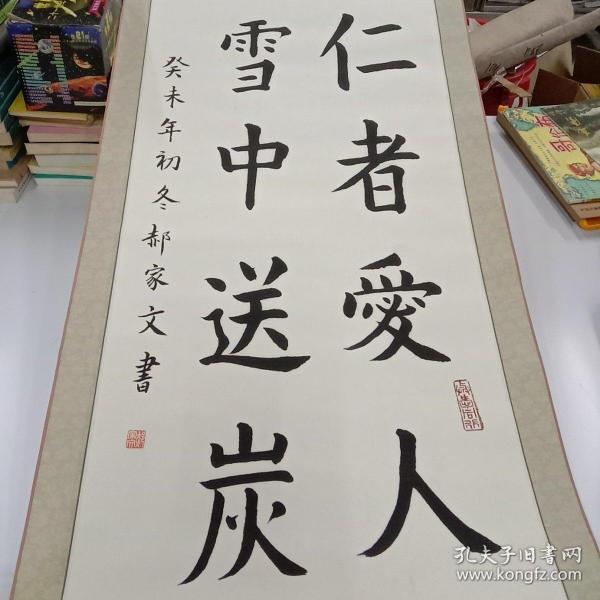 仁者愛人
雪中送炭
癸未年初冬郝家文書
孔夫子旧书网
www.kongfz.com